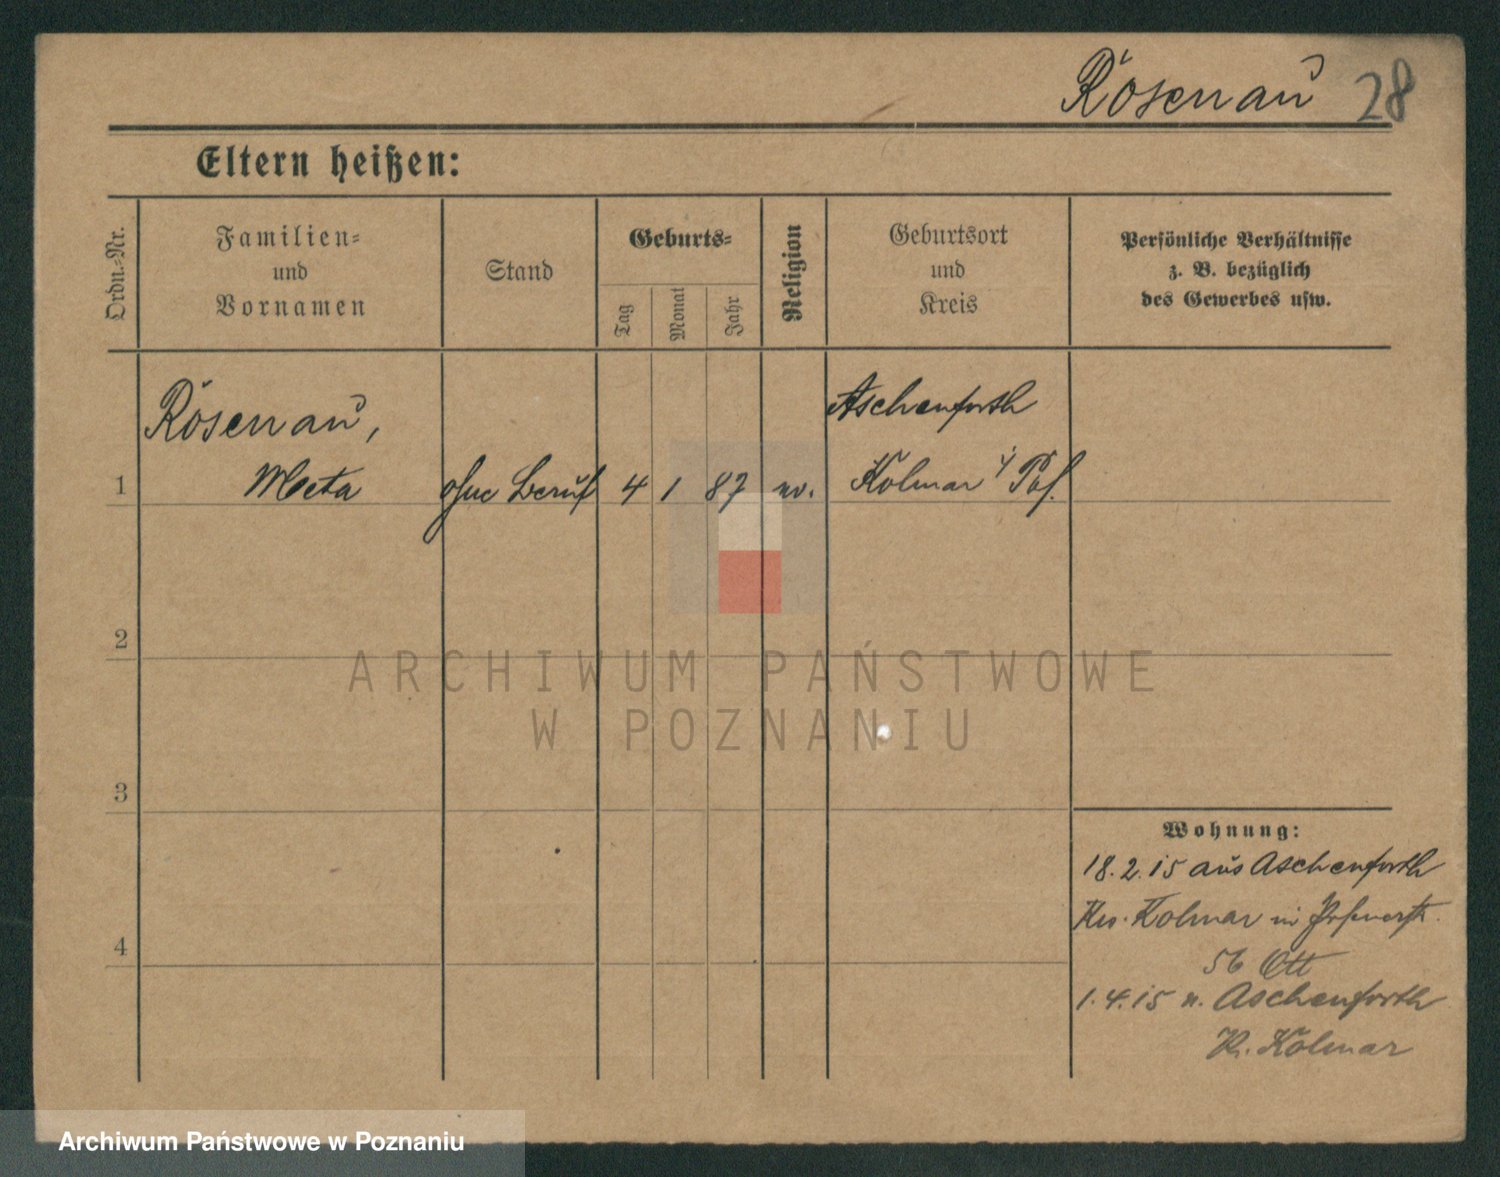 Rosenau 28
Eltern heißen:
Ordn.-Nr.
Familien-
und
Vornamen
Stand
Geburts-
Tag
Monat
Jahr
Religion
Geburtsort
und
Kreis
Persönliche Verhältnisse
z. B. bezüglich
des Gewerbes usw.
Rosenau,
Aschenforth
1 Meta ohne Beruf 4 1 87 ev. Kolmar i/ Pos.
2
3
4
Wohnung:
18.2.15 aus Aschenforth
Krs. Kolmar in
56 Ott
1.4.15 n. Aschenforth
Kr. Kolmar
ARCHIWUM PAŃSTWOWE
W POZNANIU
Archiwum Państwowe w Poznaniu